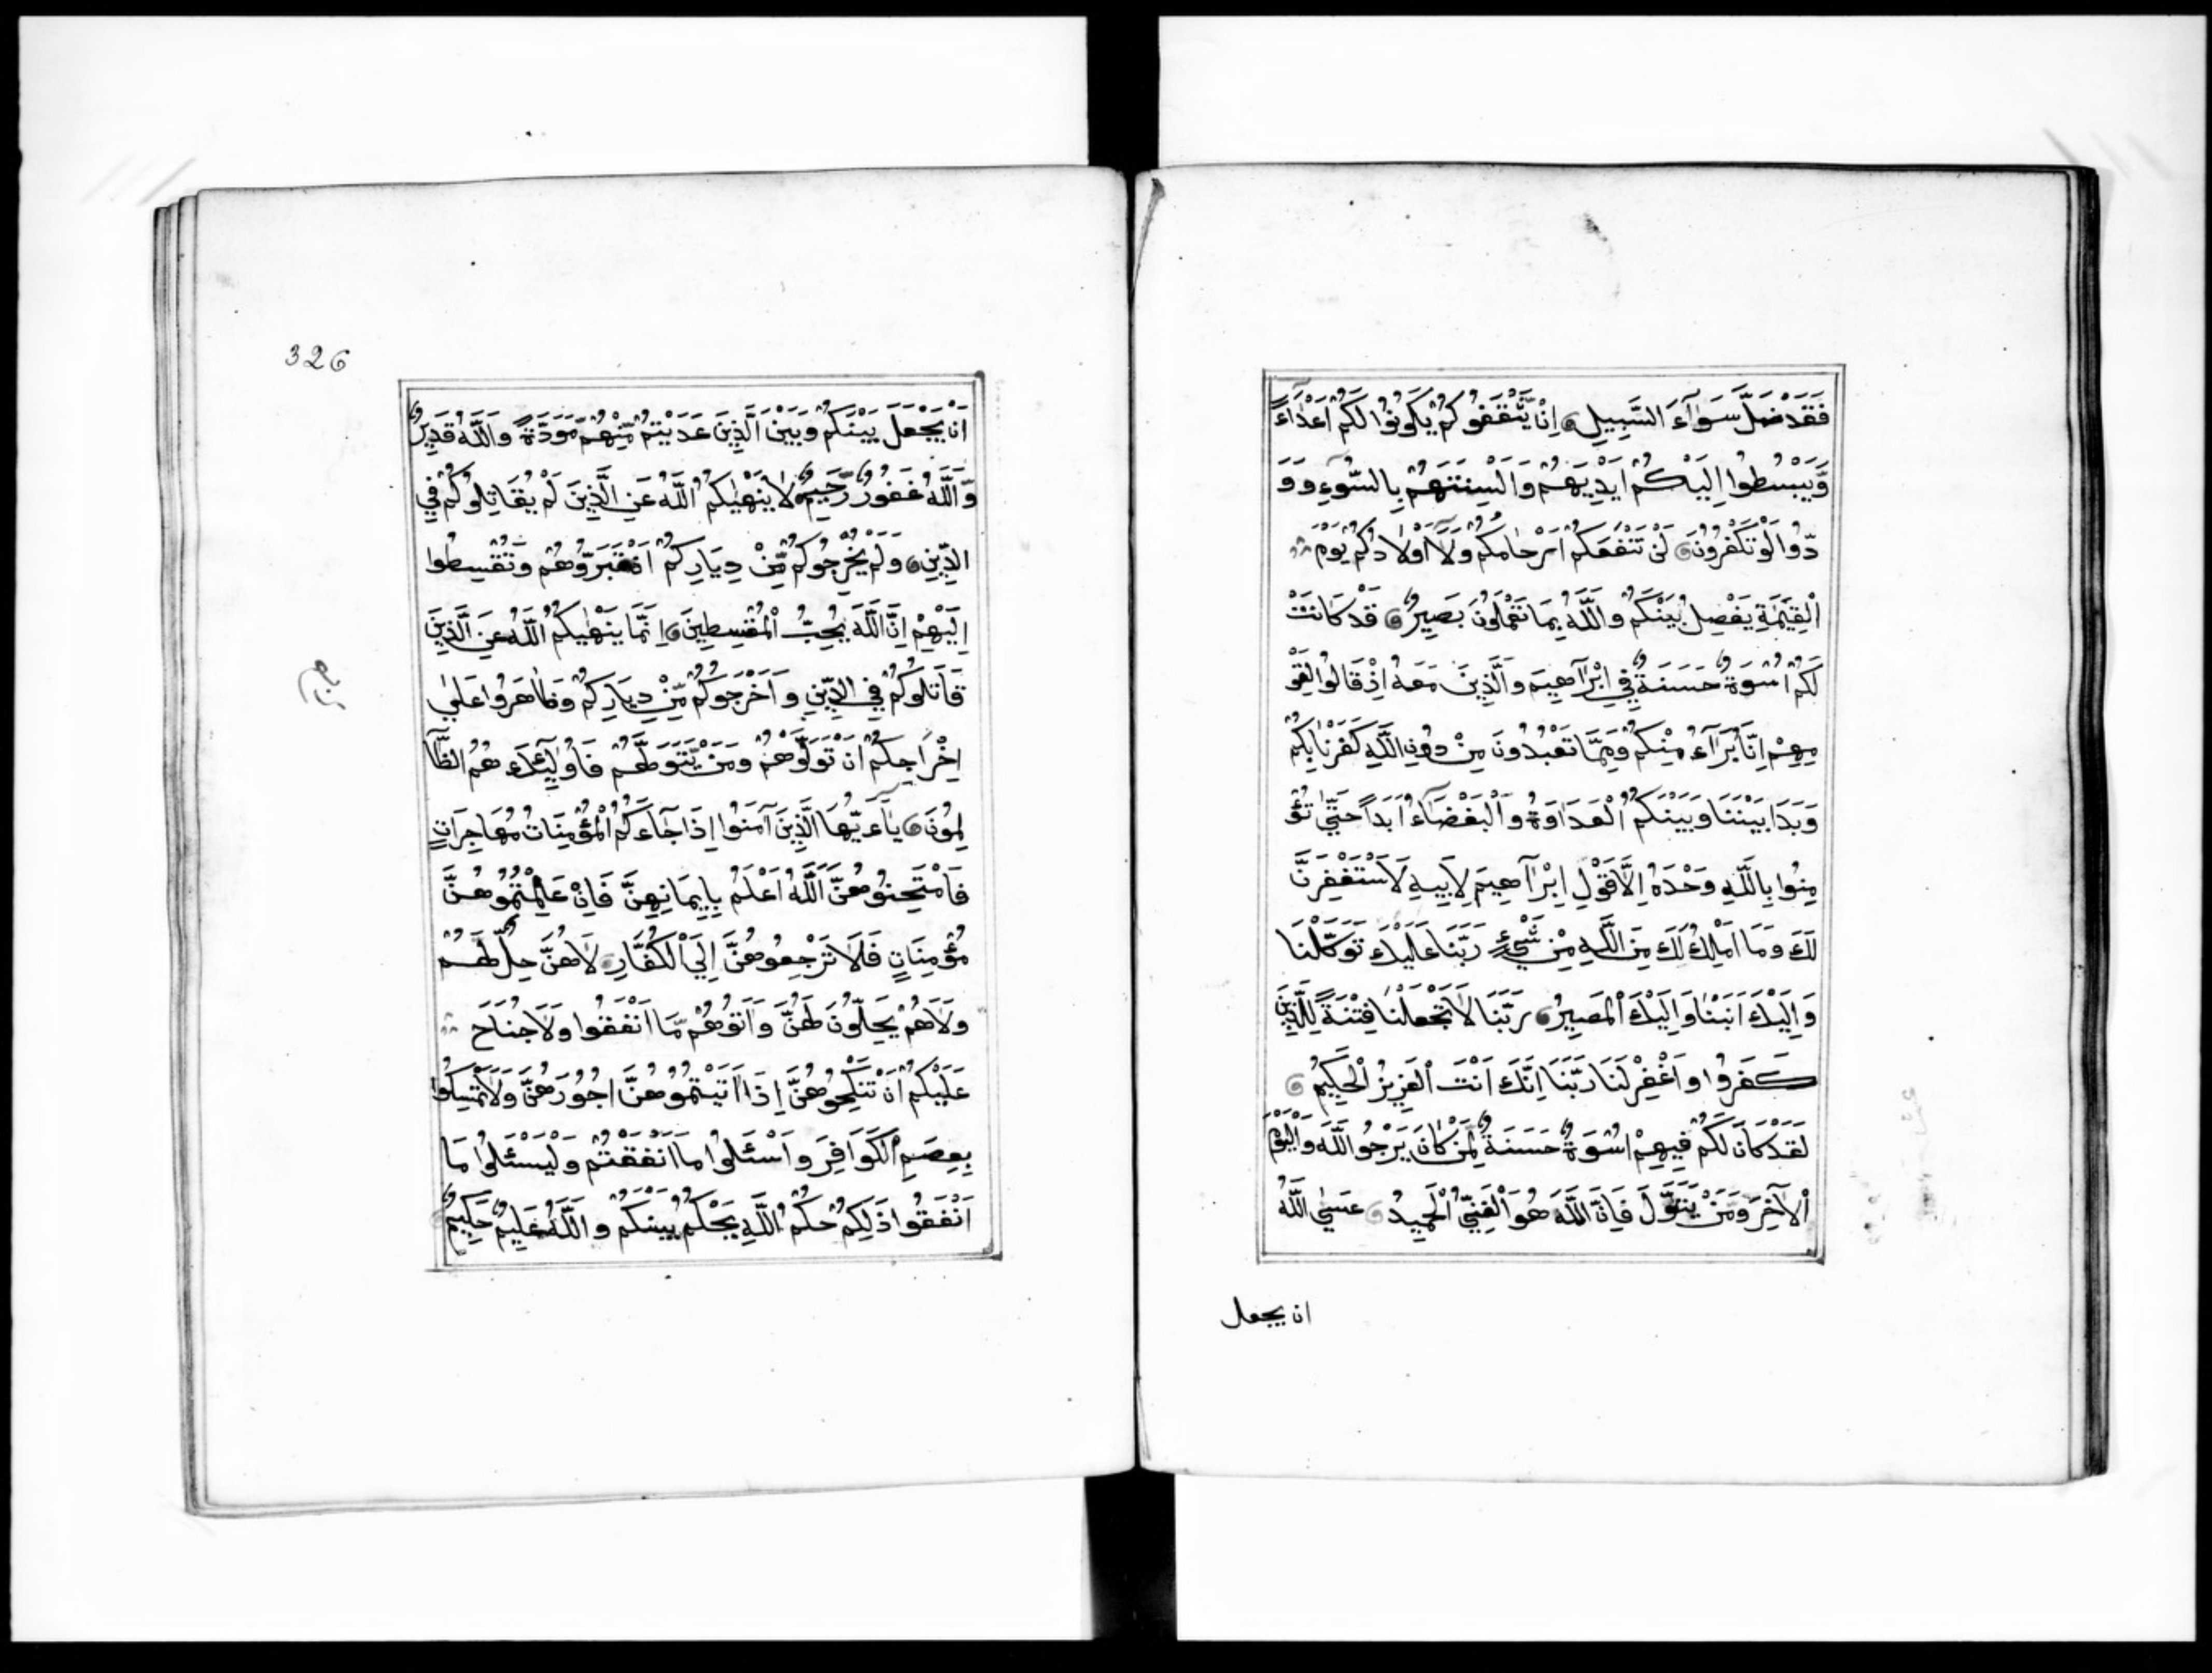 فَقَدْ ضَلَّ سَوَآءَ السَّبِيلِ اِنْ يَّثْقَفُوكُمْ يَكُونُوا لَكُمْ اَعْدَآءً
وَّيَبْسُطُوا اِلَيْكُمْ اَيْدِيَهُمْ وَاَلْسِنَتَهُمْ بِالسُّوءِ وَوَ
دُّوا لَوْ تَكْفُرُونَ لَنْ تَنْفَعَكُمْ اَرْحَامُكُمْ وَلَآ اَوْلَادُكُمْ يَوْمَ
الْقِيٰمَةِ يَفْصِلُ بَيْنَكُمْ وَاللَّهُ بِمَا تَعْمَلُونَ بَصِيرٌ قَدْ كَانَتْ
لَكُمْ اُسْوَةٌ حَسَنَةٌ فِي اِبْرَاهِيمَ وَالَّذِينَ مَعَهُ اِذْ قَالُوا لِقَوْ
مِهِمْ اِنَّا بُرَآءُ مِنْكُمْ وَمِمَّا تَعْبُدُونَ مِنْ دُونِ اللَّهِ كَفَرْنَا بِكُمْ
وَبَدَا بَيْنَنَا وَبَيْنَكُمُ الْعَدَاوَةُ وَالْبَغْضَآءُ اَبَدًا حَتّٰى تُؤْ
مِنُوا بِاللَّهِ وَحْدَهُ اِلَّا قَوْلَ اِبْرَاهِيمَ لِاَبِيهِ لَاَسْتَغْفِرَنَّ
لَكَ وَمَا اَمْلِكُ لَكَ مِنَ اللَّهِ مِنْ شَيْءٍ رَبَّنَا عَلَيْكَ تَوَكَّلْنَا
وَاِلَيْكَ اَنَبْنَا وَاِلَيْكَ الْمَصِيرُ رَبَّنَا لَا تَجْعَلْنَا فِتْنَةً لِلَّذِينَ
كَفَرُوا وَاغْفِرْ لَنَا رَبَّنَا اِنَّكَ اَنْتَ الْعَزِيزُ الْحَكِيمُ
لَقَدْ كَانَ لَكُمْ فِيهِمْ اُسْوَةٌ حَسَنَةٌ لِمَنْ كَانَ يَرْجُو اللَّهَ وَالْيَوْمَ
الْآخِرَ وَمَنْ يَتَوَلَّ فَاِنَّ اللَّهَ هُوَ الْغَنِيُّ الْحَمِيدُ عَسَى اللَّهُ
ان يجعل
326
اَنْ يَجْعَلَ بَيْنَكُمْ وَبَيْنَ الَّذِينَ عَدَيْتُمْ مِّنْهُمْ مَوَدَّةً وَاللَّهُ قَدِيرٌ
وَّاللَّهُ غَفُورٌ رَّحِيمٌ لَا يَنْهٰيكُمُ اللَّهُ عَنِ الَّذِينَ لَمْ يُقَاتِلُوكُمْ فِي
الدِّينِ وَلَمْ يُخْرِجُوكُمْ مِّنْ دِيَارِكُمْ اَنْ تَبَرُّوهُمْ وَتُقْسِطُوا
اِلَيْهِمْ اِنَّ اللَّهَ يُحِبُّ الْمُقْسِطِينَ اِنَّمَا يَنْهٰيكُمُ اللَّهُ عَنِ الَّذِينَ
قَاتَلُوكُمْ فِي الدِّينِ وَاَخْرَجُوكُمْ مِّنْ دِيَارِكُمْ وَظَاهَرُوا عَلٰى
اِخْرَاجِكُمْ اَنْ تَوَلَّوْهُمْ وَمَنْ يَّتَوَلَّهُمْ فَاُولٰٓئِكَ هُمُ الظَّا
لِمُونَ يَآءَيُّهَا الَّذِينَ آمَنُوا اِذَا جَآءَكُمُ الْمُؤْمِنَاتُ مُهَاجِرَاتٍ
فَامْتَحِنُوهُنَّ اَللَّهُ اَعْلَمُ بِاِيمَانِهِنَّ فَاِنْ عَلِمْتُمُوهُنَّ
مُؤْمِنَاتٍ فَلَا تَرْجِعُوهُنَّ اِلَى الْكُفَّارِ لَا هُنَّ حِلٌّ لَهُمْ
وَلَا هُمْ يَحِلُّونَ لَهُنَّ وَاٰتُوهُمْ مَّا اَنْفَقُوا وَلَا جُنَاحَ
عَلَيْكُمْ اَنْ تَنْكِحُوهُنَّ اِذَا اٰتَيْتُمُوهُنَّ اُجُورَهُنَّ وَلَا تُمْسِكُوا
بِعِصَمِ الْكَوَافِرِ وَاسْئَلُوا مَا اَنْفَقْتُمْ وَلْيَسْئَلُوا مَا
اَنْفَقُوا ذٰلِكُمْ حُكْمُ اللَّهِ يَحْكُمُ بَيْنَكُمْ وَاللَّهُ عَلِيمٌ حَكِيمٌ